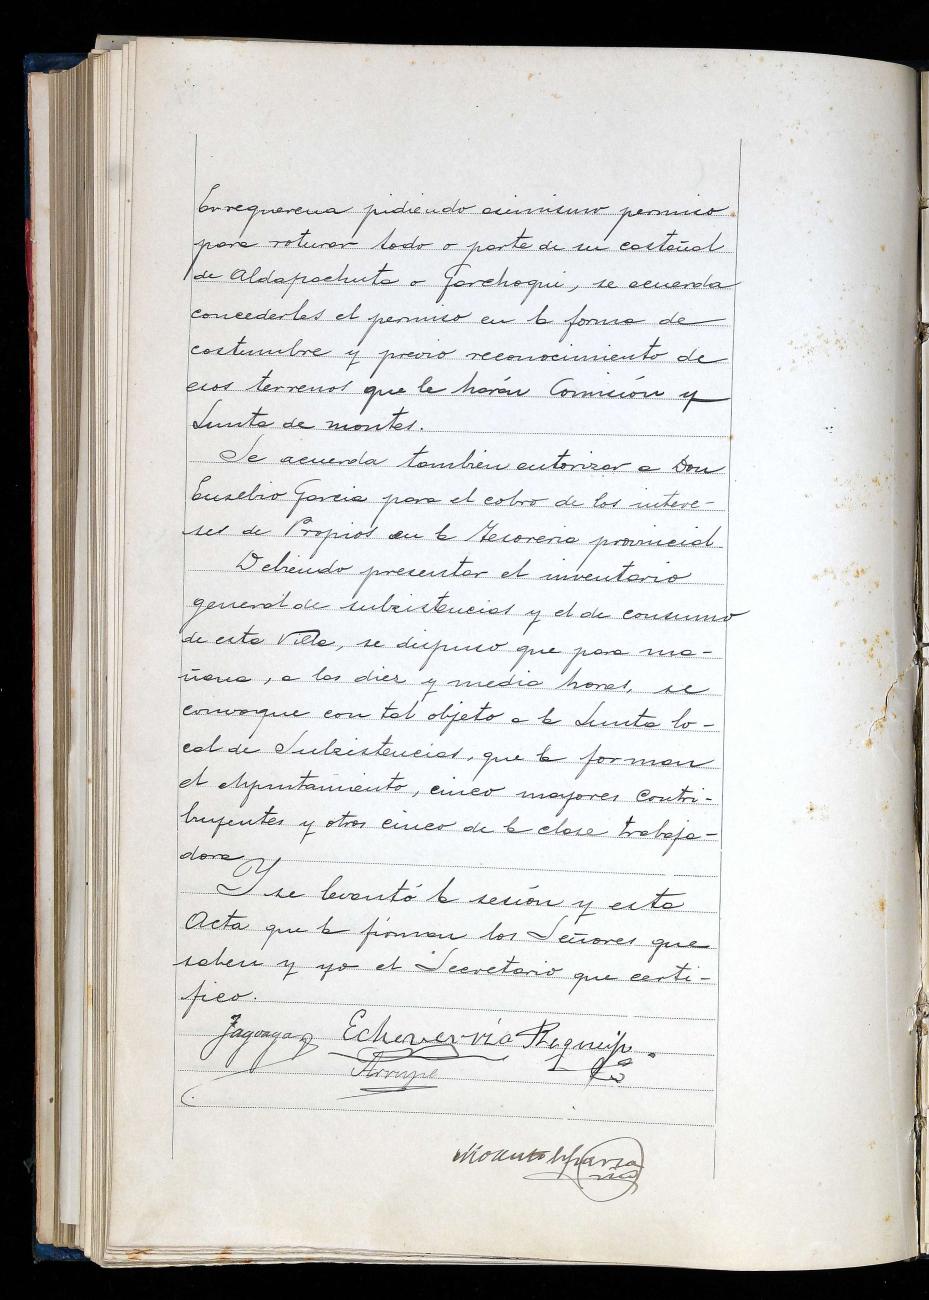 Errequerena pidiendo asimismo permiso
para roturar todo o parte de su castañal
de Aldapachuta o Garchoqui, se acuerda
concederles el permiso en la forma de
costumbre y previo reconocimiento de
esos terrenos que le harán Comisión y
Junta de montes.
Se acuerda también autorizar a Don
Eusebio Garcia para el cobro de los intere-
ses de Propios en la Tesoreria provincial
Debiendo presentar el inventario
general de subsistencias y el de consumo
de esta Villa, se dispuso que para ma-
ñana, a las diez y media horas, se
convoque con tal objeto a la Junta lo-
cal de Subsistencias, que la forman
el Ayuntamiento, cinco mayores contri-
buyentes y otros cinco de la clase trabaja-
dora
Y se levantó la sesión y esta
Acta que la firman los Señores que
saben y yo el Secretario que certi-
fico.
Jagoaga Echeverria
Arrupe